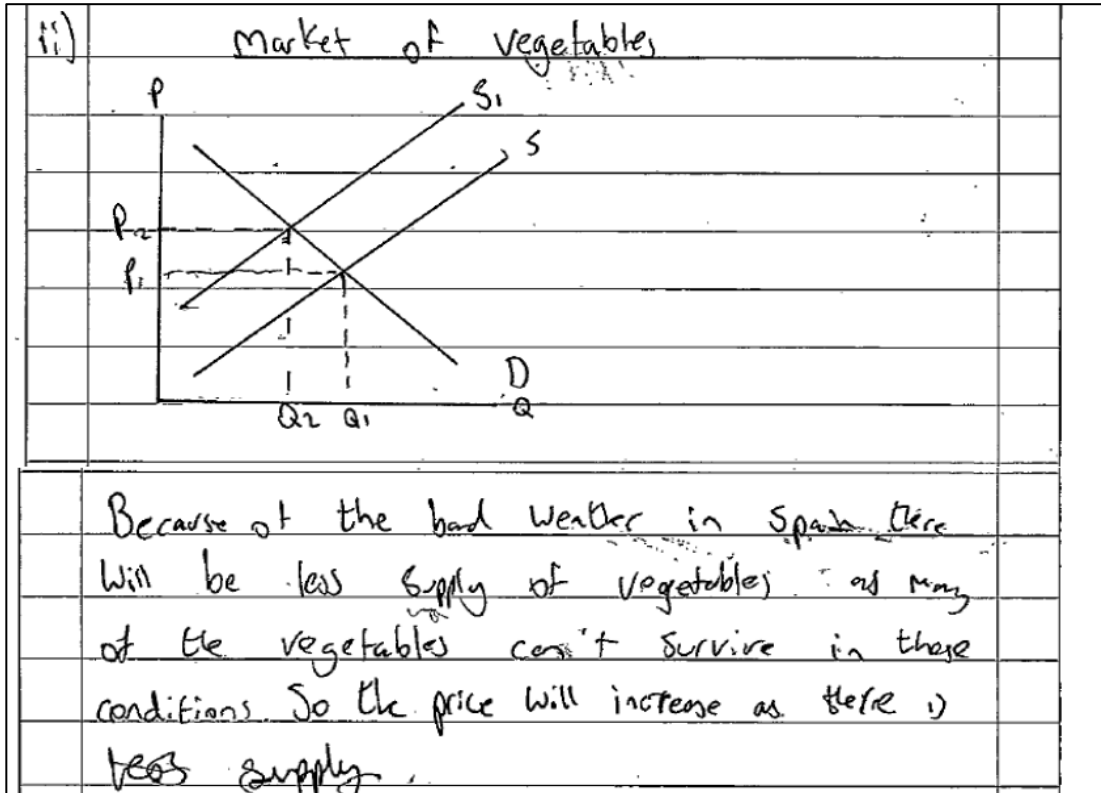 ii) Market of vegetables
P
S1
S
P2
P1
D
Q2 Q1 Q
Because of the bad weather in Spain there
will be less supply of vegetables as many
of the vegetables can't survive in these
conditions. So the price will increase as there is
less supply.